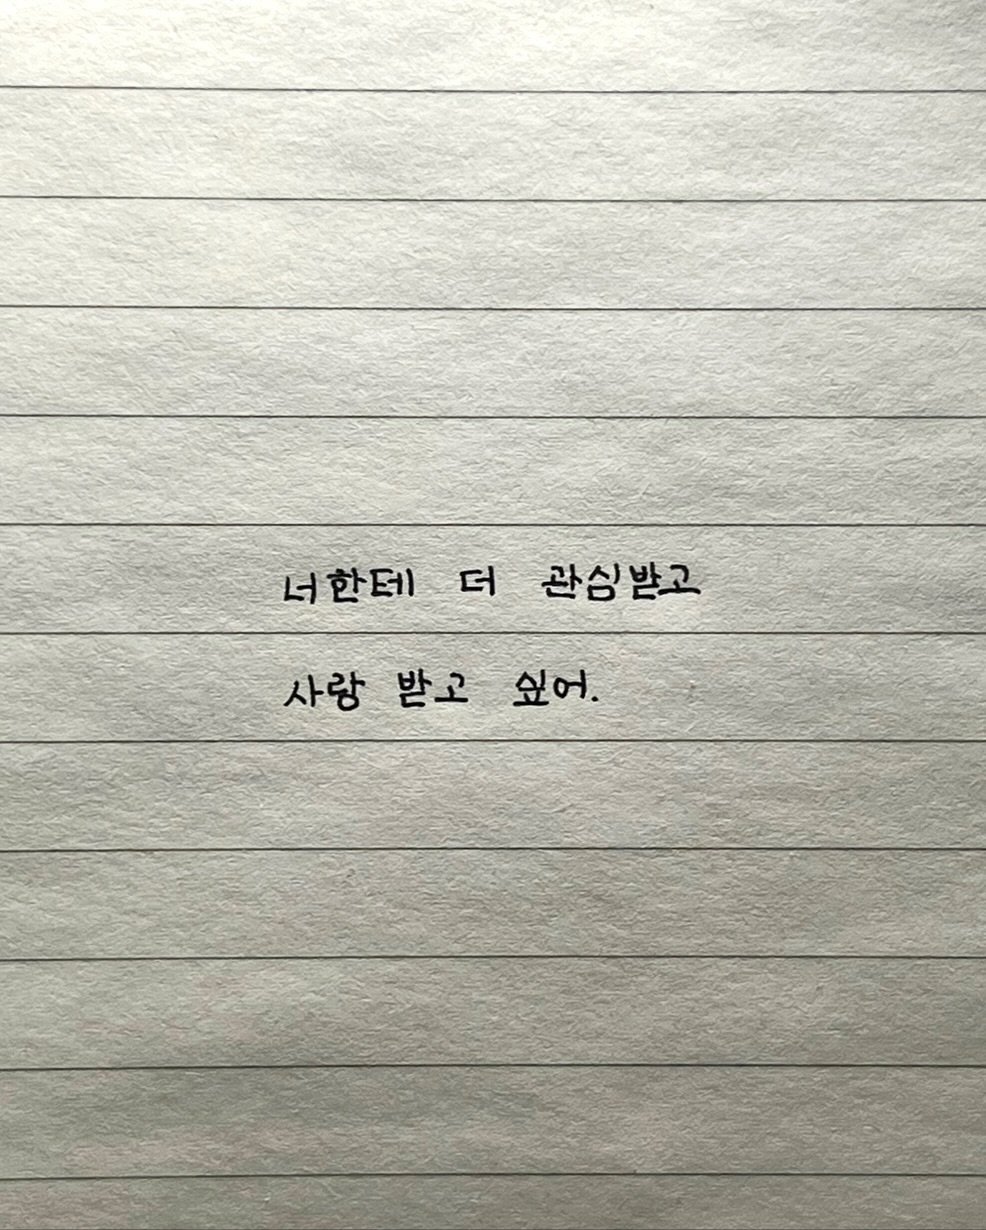 너한테 더 관심받고
사랑 받고 싶어.